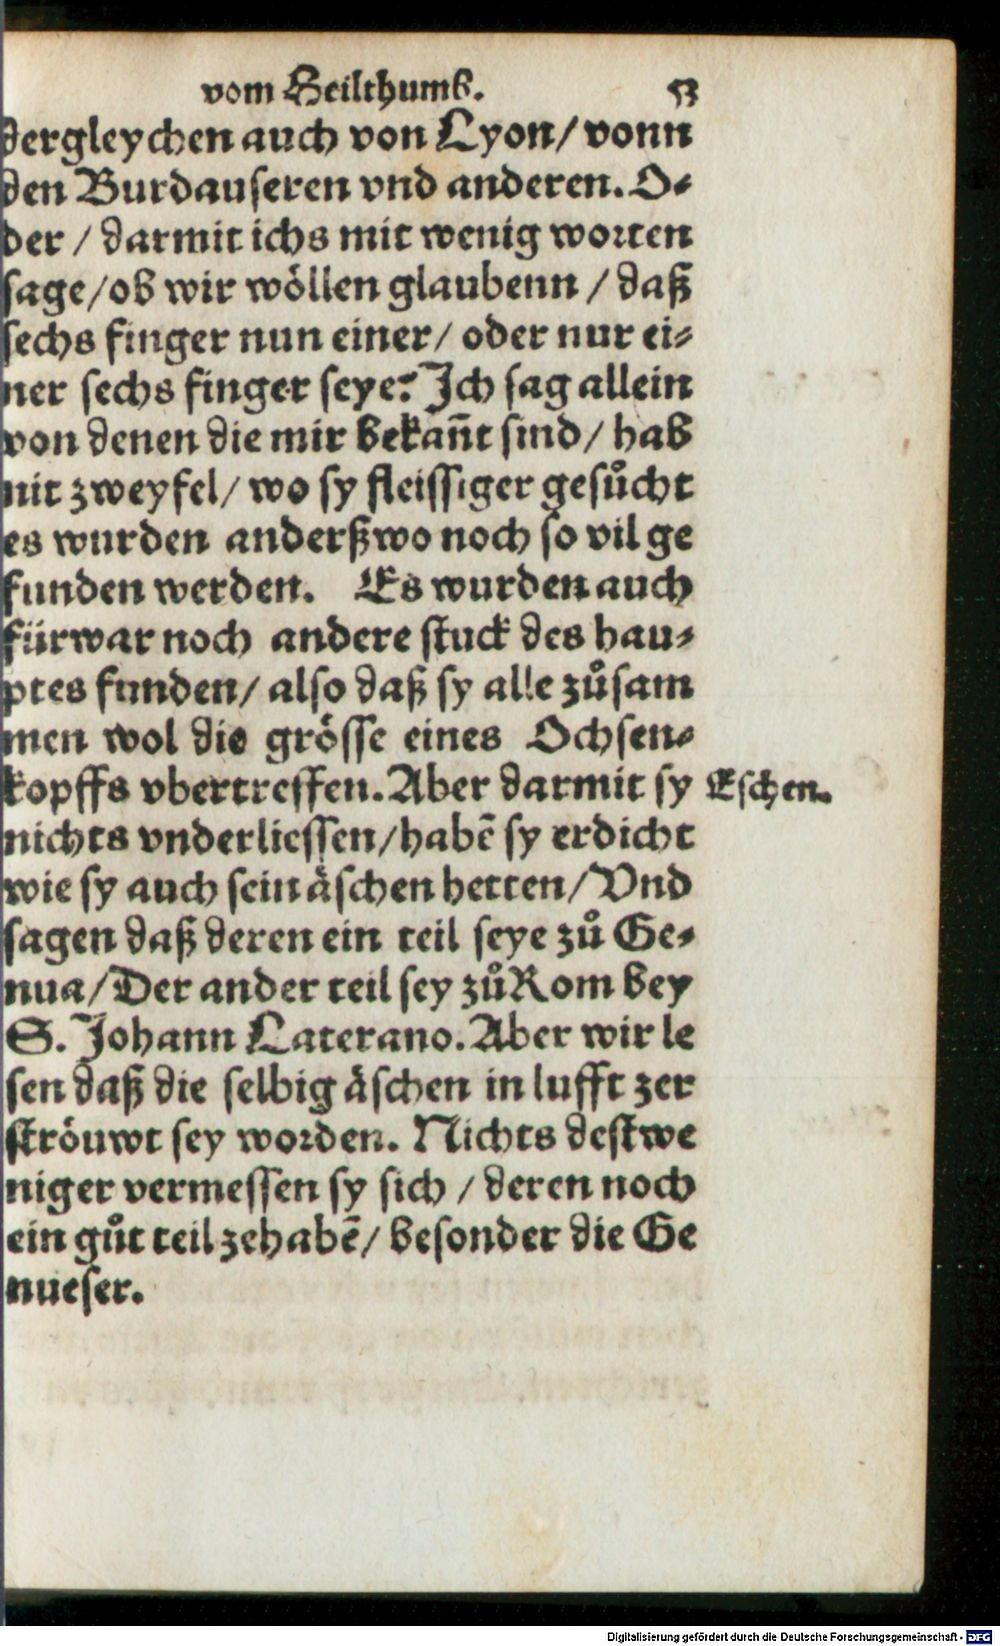 vom Heilthumb. 53
dergleychen auch von Lyon/ vonn
den Burdauseren vnd anderen. O⸗
der / darmit ichs mit wenig worten
sage/ob wir wöllen glaubenn / daß
sechs finger nun einer/ oder nur ei⸗
ner sechs finger seye? Ich sag allein
von denen die mir bekañt sind/ hab
nit zweyfel/ wo sy fleissiger gesůcht
es wurden anderßwo noch so vil ge
funden werden. Es wurden auch
fürwar noch andere stuck des hau⸗
ptes funden/ also daß sy alle zůsam
men wol die grösse eines Ochsen⸗
kopffs vbertreffen. Aber darmit sy
Eschen.
nichts vnderliessen/habē sy erdicht
wie sy auch sein äschen hetten/ Vnd
sagen daß deren ein teil seye zů Ge⸗
nua/ Der ander teil sey zů Rom bey
S. Johann Laterano. Aber wir le
sen daß die selbig äschen in lufft zer
ströuwt sey worden. Nichts destwe
niger vermessen sy sich / deren noch
ein gůt teil zehabē/ besonder die Ge
nueser.
Digitalisierung gefördert durch die Deutsche Forschungsgemeinschaft - DFG